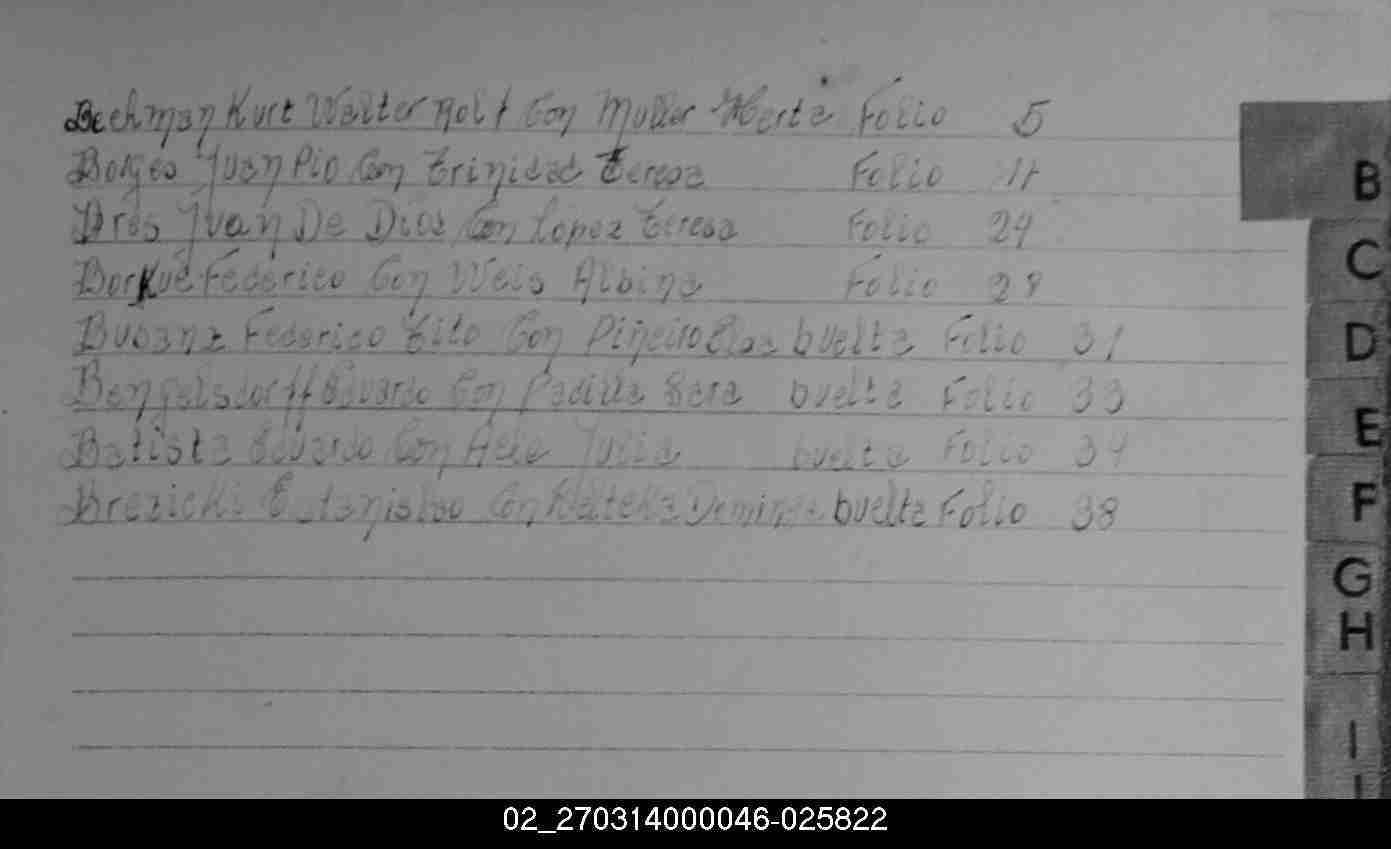 Bechman Kurt Walter Rolf Con Muller Herta Folio 5
Borges Juan Pio Con Trinidad Teresa Folio 11
Bres Juan De Dios Con Lopez Teresa Folio 24
Borkue Federico Con Weis Albina Folio 28
Busana Federico Tito Con Piñeiro buelta Folio 31
Bengelsdorff Eduardo Con Padilla Sara buelta Folio 33
Batista Eduardo Con Julia buelta Folio 34
Brezicki Estanislao Con Dominga buelta Folio 38
B
C
D
E
F
G
H
I
02_270314000046-025822